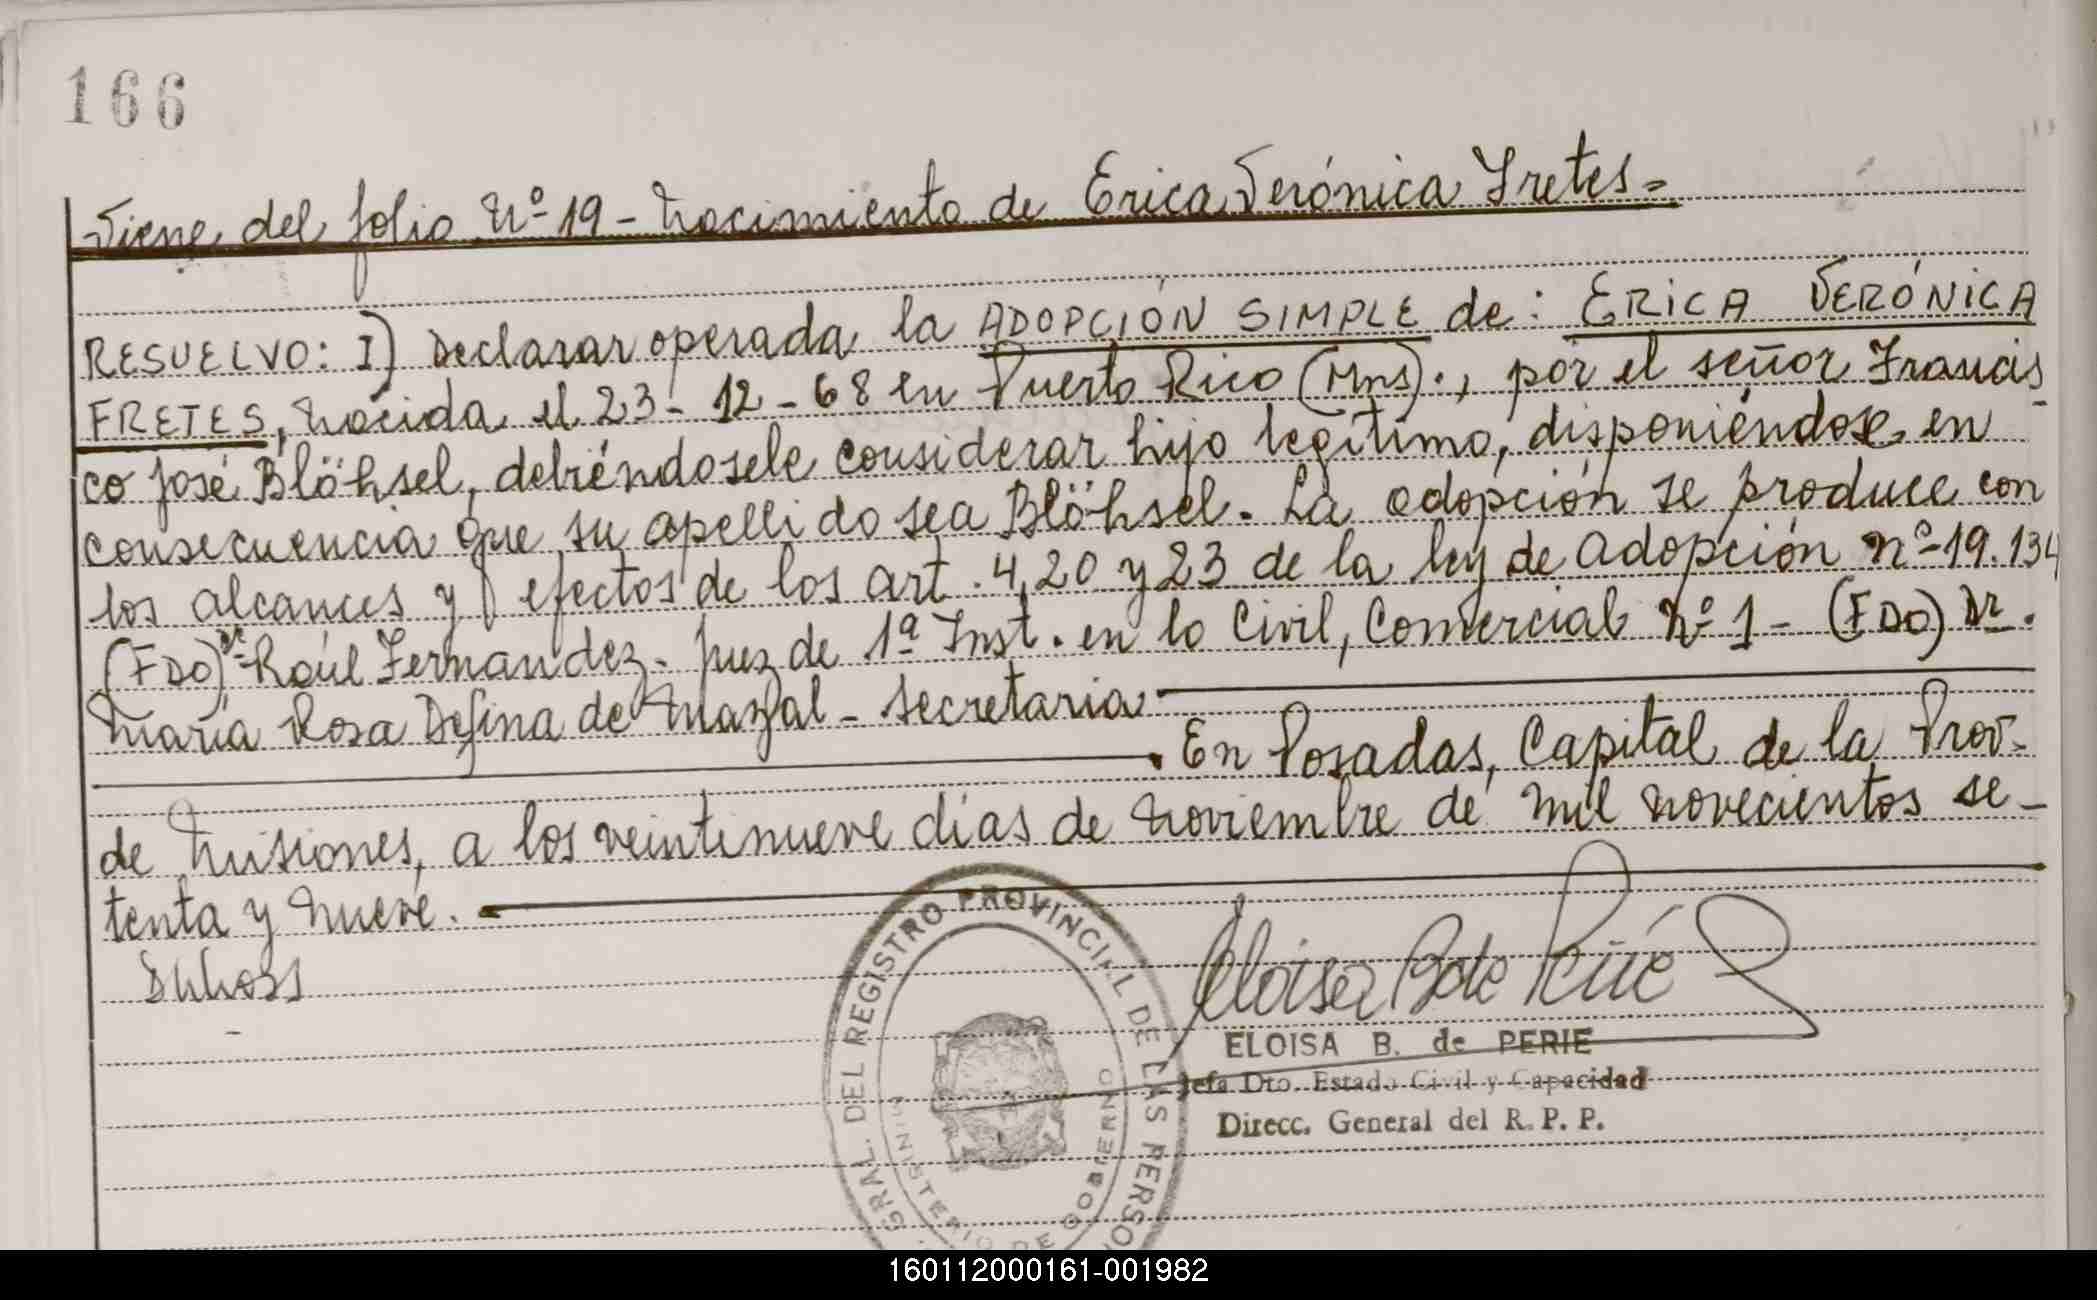 166
Viene del folio Nº 19 - Nacimiento de Erica Verónica Fretes =
RESUELVO: I) Declarar operada la ADOPCIÓN SIMPLE de: ERICA VERÓNICA
FRETES, nacida el 23 - 12 - 68 en Puerto Rico (Mns)., por el señor Francis
co José Blöhsel, debiéndosele considerar hijo legítimo, disponiéndose en
consecuencia que su apellido sea Blöhsel. La adopción se produce con
los alcances y efectos de los art. 4, 20 y 23 de la ley de adopción nº 19.134
(FDO) Dr. Raúl Fernandez - Juez de 1ª Inst. en lo Civil, Comercial Nº 1 - (FDO) Dr.
María Rosa Defina de Mazal - secretaria
. En Posadas, Capital de la Prov.
de Misiones, a los veintinueve días de noviembre de mil novecientos se-
tenta y nueve.
GRAL. DEL REGISTRO PROVINCIAL DE LAS PERSO
MINISTERIO DE GOBIERNO
ELOISA B. de PERIE
Jefa Dto. Estado Civil y Capacidad
Direcc. General del R. P. P.
160112000161-001982